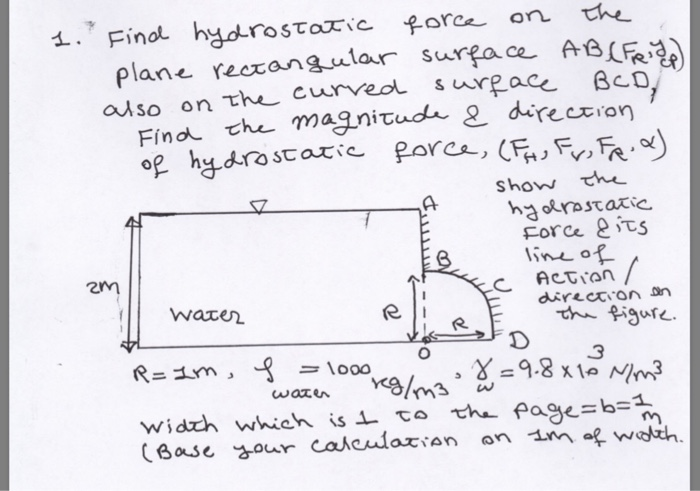 1. Find hydrostatic force on the
plane rectangular surface AB (FR, ycp)
also on the curved surface BCD,
Find the magnitude & direction
of hydrostatic force, (FH, FV, FR, α)
show the
hydrostatic
Force & its
line of
Action /
direction on
the figure.
A
B
C
2m
water
R
R
O
D
R = 1m, ρwater = 1000 kg/m3, γw = 9.8 × 10³ N/m3
width which is ⊥ to the page = b = 1m
(Base your calculation on 1m of width.